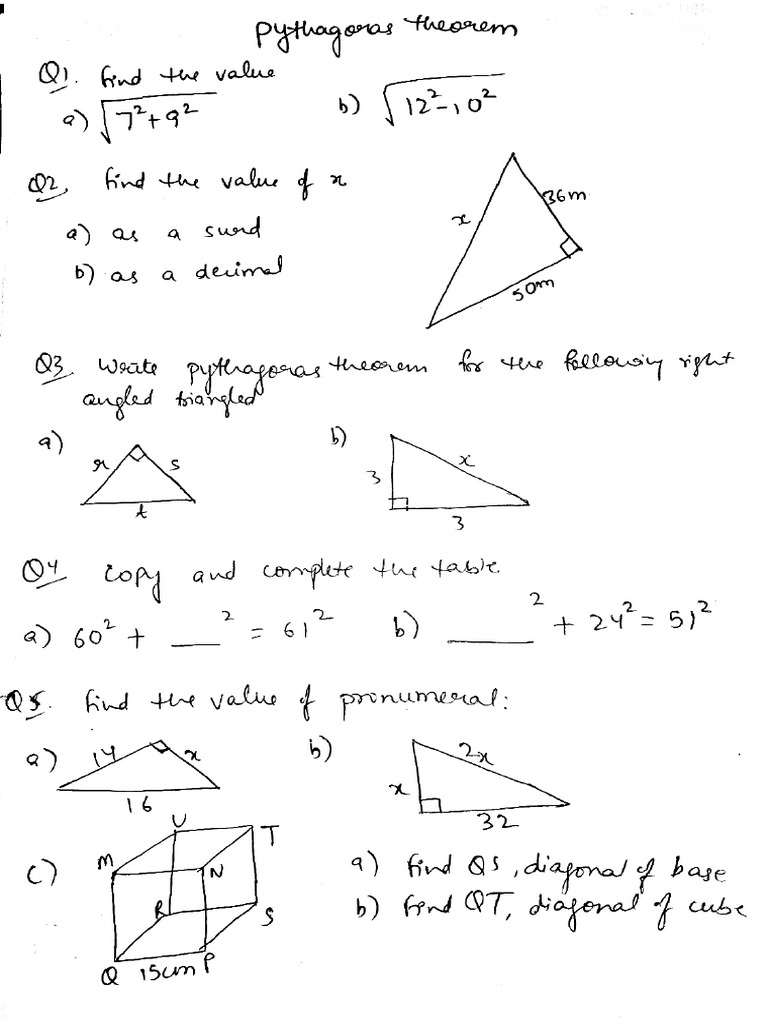 Pythagoras theorem
Q1. find the value
a) √7²+9² b) √12²-10²
Q2, find the value of x
a) as a surd
b) as a decimal
x 36m
50m
Q3 Write pythagoras theorem for the following right
angled triangled
a) r s t b) 3 x 3
Q4 copy and complete the table
a) 60² + __² = 61² b) ____² + 24² = 51²
Q5. find the value of pronumeral:
a) 14 x 16 b) x 2x 32
c) U T M N R S Q 15cm P
a) find QS, diagonal of base
b) find QT, diagonal of cube